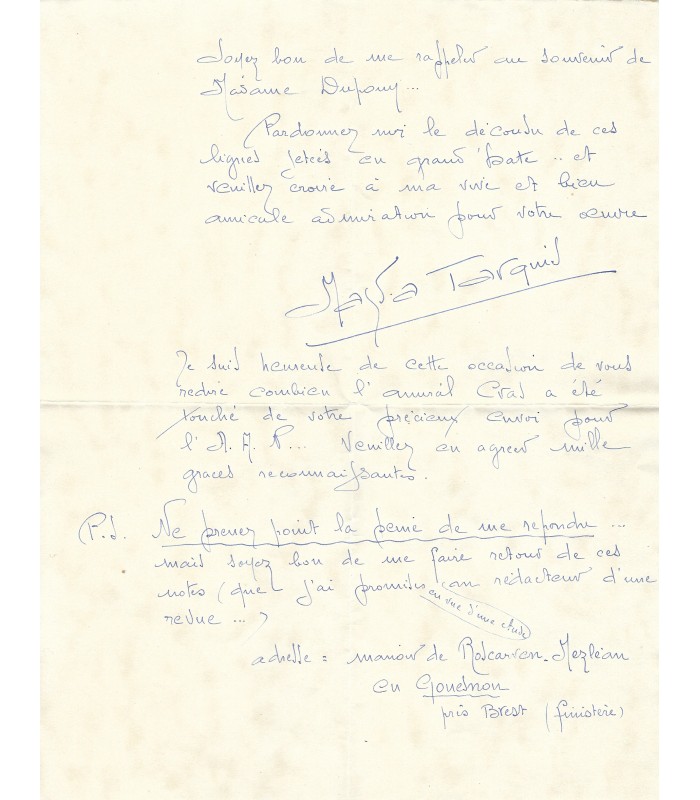 Soyez bon de me rappeler au souvenir de
Madame Dupouy...
Pardonnez moi le décousu de ces
lignes jetées en grand'hate .. et
veuillez croire à ma vive et bien
amicale admiration pour votre œuvre
Magda Tarquis
Je suis heureuse de cette occasion de vous
redire combien l'amiral Cras a été
touché de votre précieux envoi pour
l'A.A.P... Veuillez en agreer mille
graces reconnaissantes.
P.S. Ne prenez point la peine de me repondre ...
mais soyez bon de me faire retour de ces
notes (que j'ai promises au rédacteur d'une
en vue d'une etude
revue ... )
adresse = manoir de Roscarven-Mezléan
en Gouesnou
près Brest (finistère)